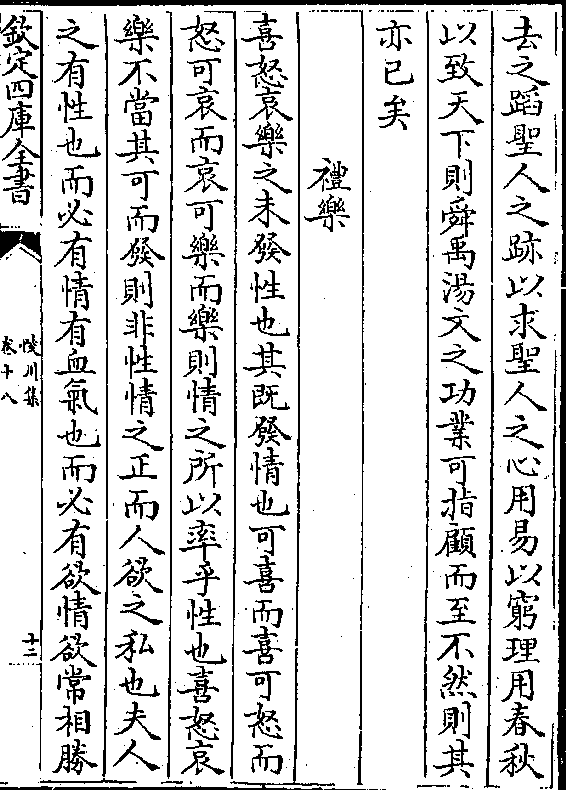 去之蹈聖人之跡以求聖人之心用易以窮理用春秋
以致天下則舜禹湯文之功業可指顧而至不然則其
亦已矣
禮樂
喜怒哀樂之未發性也其既發情也可喜而喜可怒而
怒可哀而哀可樂而樂則情之所以率乎性也喜怒哀
樂不當其可而發則非性情之正而人欲之私也夫人
之有性也而必有情有血氣也而必有欲情欲常相勝
欽定四庫全書
陵川集
卷十八
十二